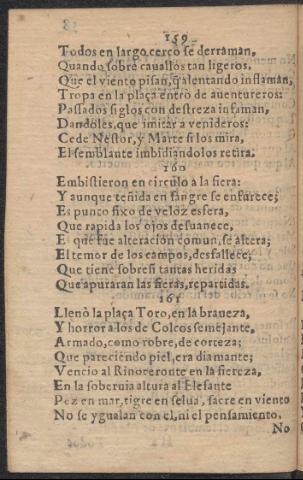 159
Todos en largo cerco se derraman,
Quando sobre cauallos tan ligeros,
Que el viento pisan, q̃ alentando inflamã,
Tropa en la plaça entrò de auentureros:
Passados siglos con destreza infaman,
Dandoles, que imitar a venideros:
Cede Nestor, y Marte si los mira,
El semblante imbidiandolos retira.
160
Embistieron en circulo à la fiera:
Y aunque teñida en sangre se enfurece;
Es punto fixo de veloz esfera,
Que rapida los ojos desuanece,
El que fue alteracion comun, se altera;
El temor de los campos, desfallece;
Que tiene sobresi tantas heridas
Que apuraran las fieras, repartidas.
161
Llenò la plaça Toro, en la braueza,
Y horror a los de Colcos semejante,
Armado, como robre, de corteza;
Que pareciendo piel, era diamante;
Vencio al Rinoceronte en la fiereza,
En la soberuia altura al Elefante
Pez en mar, tigre en selua, sacre en viento
No se ygualan con el, ni el pensamiento.
No